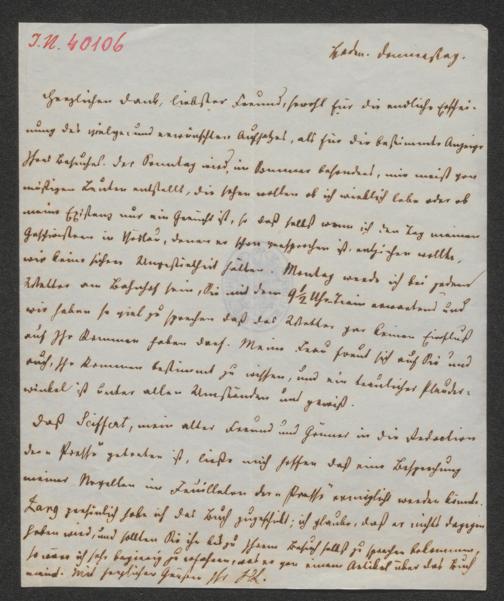 I.N. 40106
Baden. Donnerstag.
Herzlichen Dank, liebster Freund, sowohl für die endliche Erschei-
nung des vielge- und erwünschten Aufsatzes, als für die bestimmte Anzeige
Ihres Besuches. Der Sonntag wird, im Sommer besonders, mir meist von
müßigen Leuten entstellt, die sehen wollen ob ich wirklich lebe oder ob
meine Existenz nur ein Gerücht ist, so daß selbst wenn ich den Tag meinen
Geschwistern in Vöslau, denen er schon versprochen ist, entziehen wollte,
wir keine sichere Ungestörtheit hätten. Montag werde ich bei jedem
Wetter am Bahnhof sein, Sie mit dem 9½ Uhr Train erwartend und
wir haben so viel zu sprechen daß das Wetter gar keinen Einfluß
auf Ihr Kommen haben darf. Meine Frau freut sich auf Sie und
auch, Ihr Kommen bestimmt zu wissen, und ein traulicher Plauder-
winkel ist unter allen Umständen uns gewiß.
Daß Seiffert, mein alter Freund und Gönner in die Redaction
der "Presse" getreten ist, ließe mich hoffen daß eine Besprechung
meiner Novellen im Feuilleton der "Presse" ermöglicht werden könnte.
Lang persönlich habe ich das Buch zugeschickt; ich glaube, daß er nichts dagegen
haben wird, und sollten Sie ihn bis zu Ihrem Besuch selbst zu sprechen bekommen,
so wäre ich sehr begierig zu erfahren, was er von einem Artikel über das Buch
meint. Mit herzlichen Grüßen Ihr